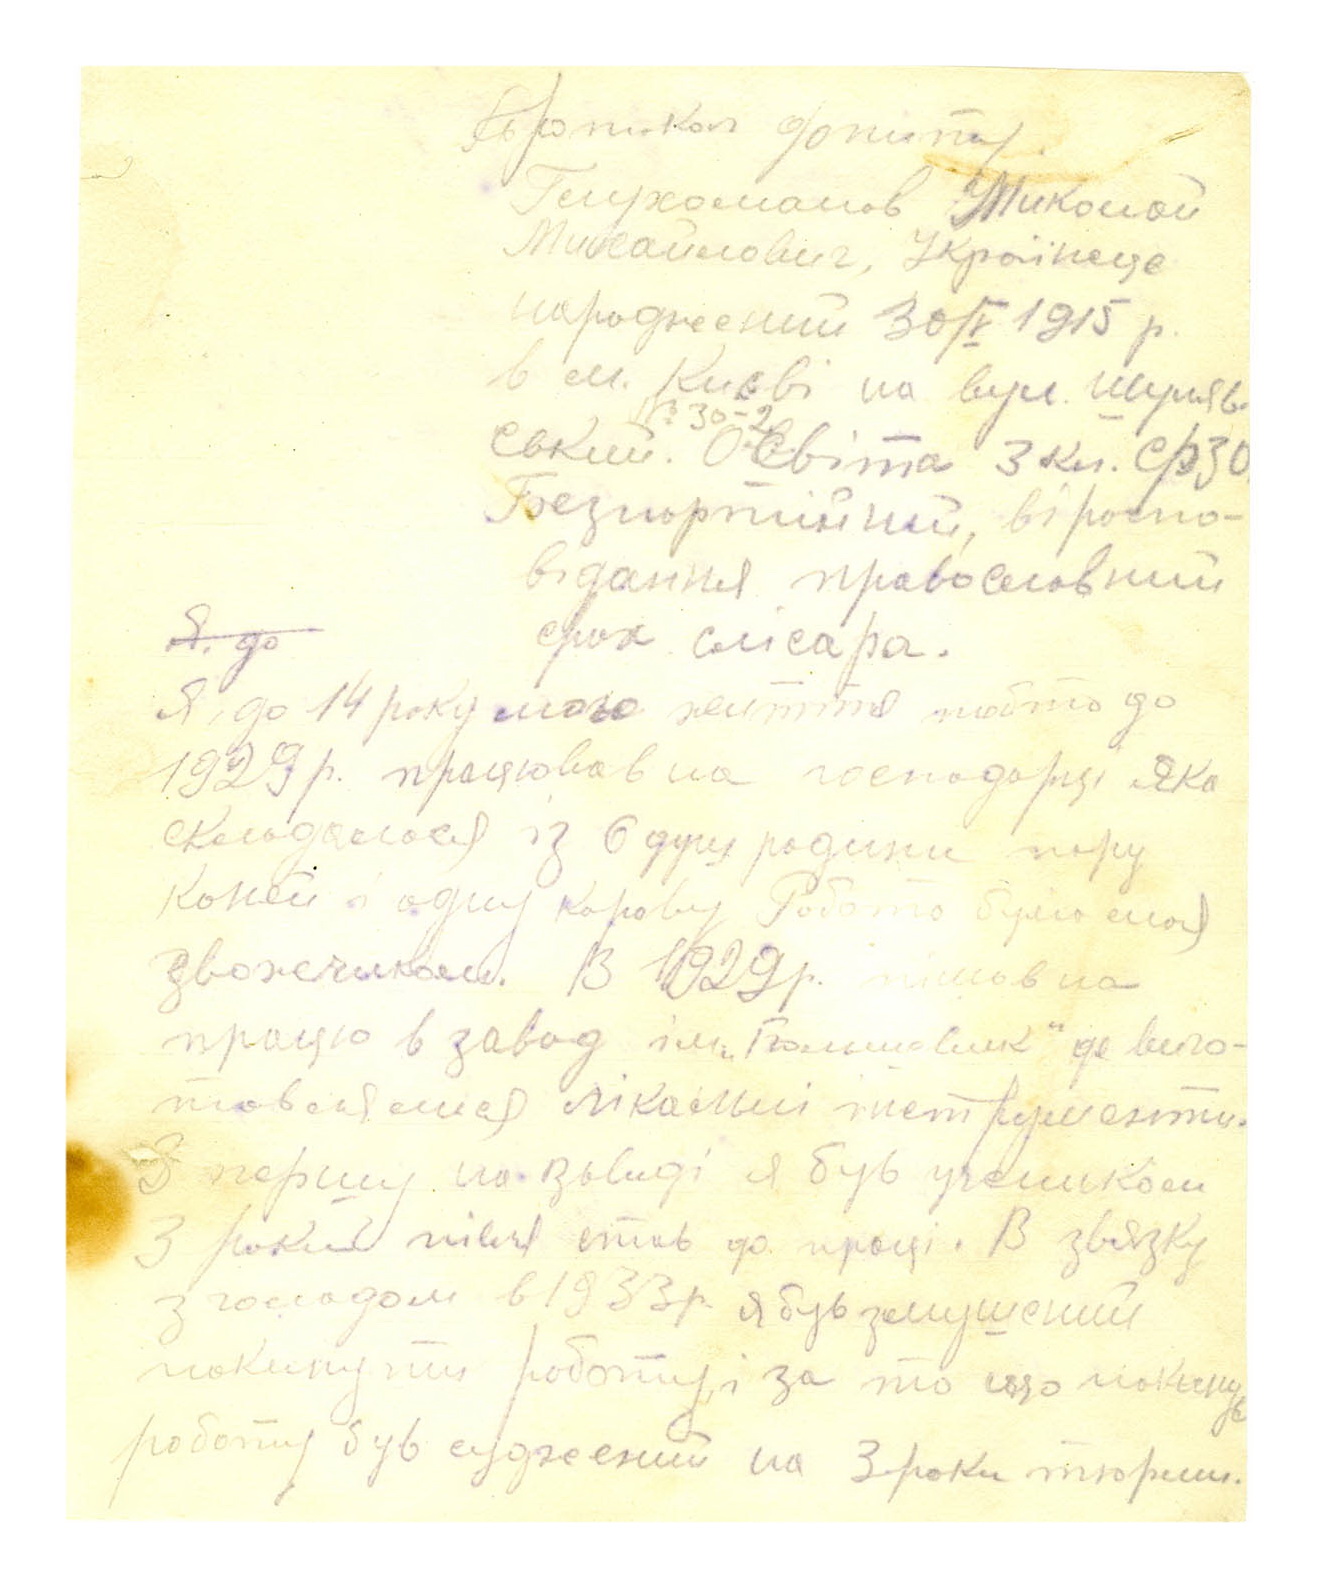 Протокол допиту.
Глухоманов Миколай
Михайлович, Українець
народжений 30/IV 1915 р.
в м. Києві на вул. Шуляв-
30-2
ський. Освіта 3 кл. ФЗО
Безпартійний, віроспо-
відання православний
фах слісара.
Я. до
Я, до 14 року мого життя тобто до
1929 р. працював на господарці яка
складалася із 6 душ родини пару
коней і одну корову Робота була моя
звожчиком. В 1929 р. пішов на
працю в завод ім. „Большовик" де виго-
товлялися лікальні інструменти.
В першу на заводі я був учеником
3 роки після став до праці. В звязку
з голодом в 1933 р. я був змушений
покинути роботу, і за то що покинув
роботу був суджений на 3 роки тюрми.